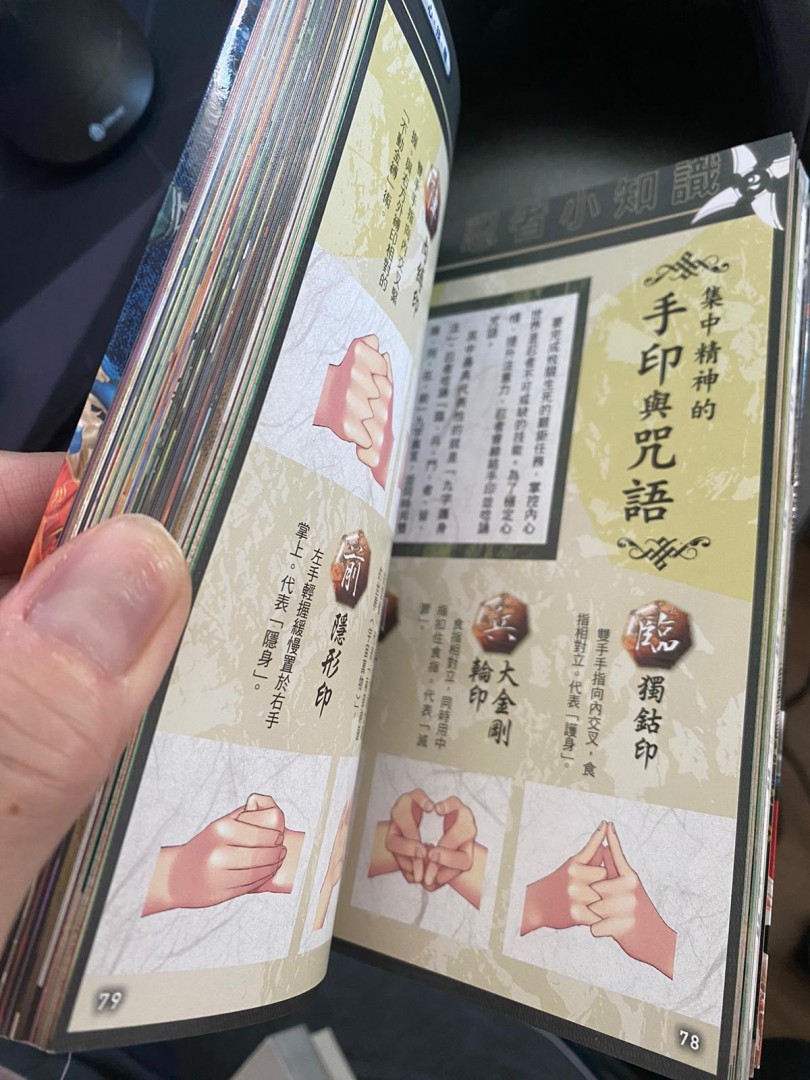 忍者小知識
集中精神的
手印與咒語
要完成攸關生死的艱鉅任務，掌控內心
世界是忍者不可或缺的技能。為了穩定心
情、提升注意力，忍者會締結手印並唸誦
咒語。
其中最具代表性的就是「九字護身
法」。忍者唸誦「臨、兵、鬥、者、皆、
臨
獨鈷印
雙手手指向內交叉，食
指相對立。代表「護身」。
兵
大金剛
輪印
食指相對立，同時用中
指扣住食指。代表「滅
罪」。
78
內縛印
雙手手指向內交叉緊
「不動金縛」術。
前
隱形印
左手輕握緩慢置於右手
掌上。代表「隱身」。
79